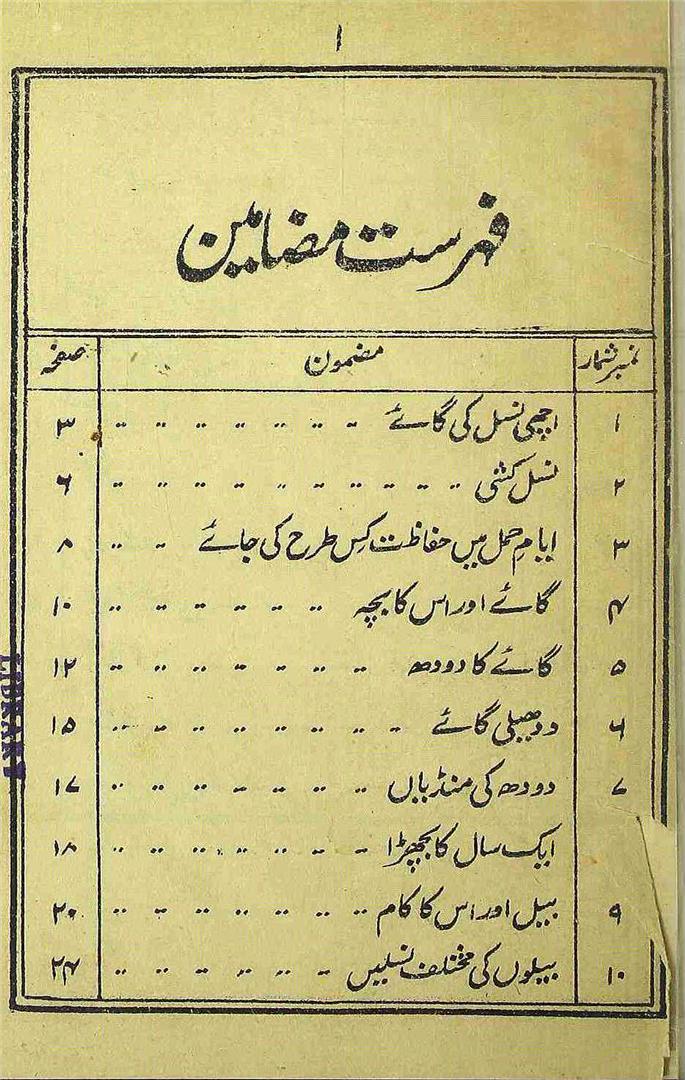 ۱
فہرست مضامین
نمبر شمار مضمون صفحہ
۱ اچھی نسل کی گائے ۳
۲ نسل کشی ۶
۳ ایامِ حمل میں حفاظت کِس طرح کی جائے ۸
۴ گائے اور اس کا بچہ ۱۰
۵ گائے کا دودھ ۱۲
۶ دودھیلی گائے ۱۵
۷ دودھ کی منڈیاں ۱۷
ایک سال کا بچھڑا ۱۸
۹ بیل اور اس کا کام ۲۰
۱۰ بیلوں کی مختلف نسلیں ۲۴
LIBRARY